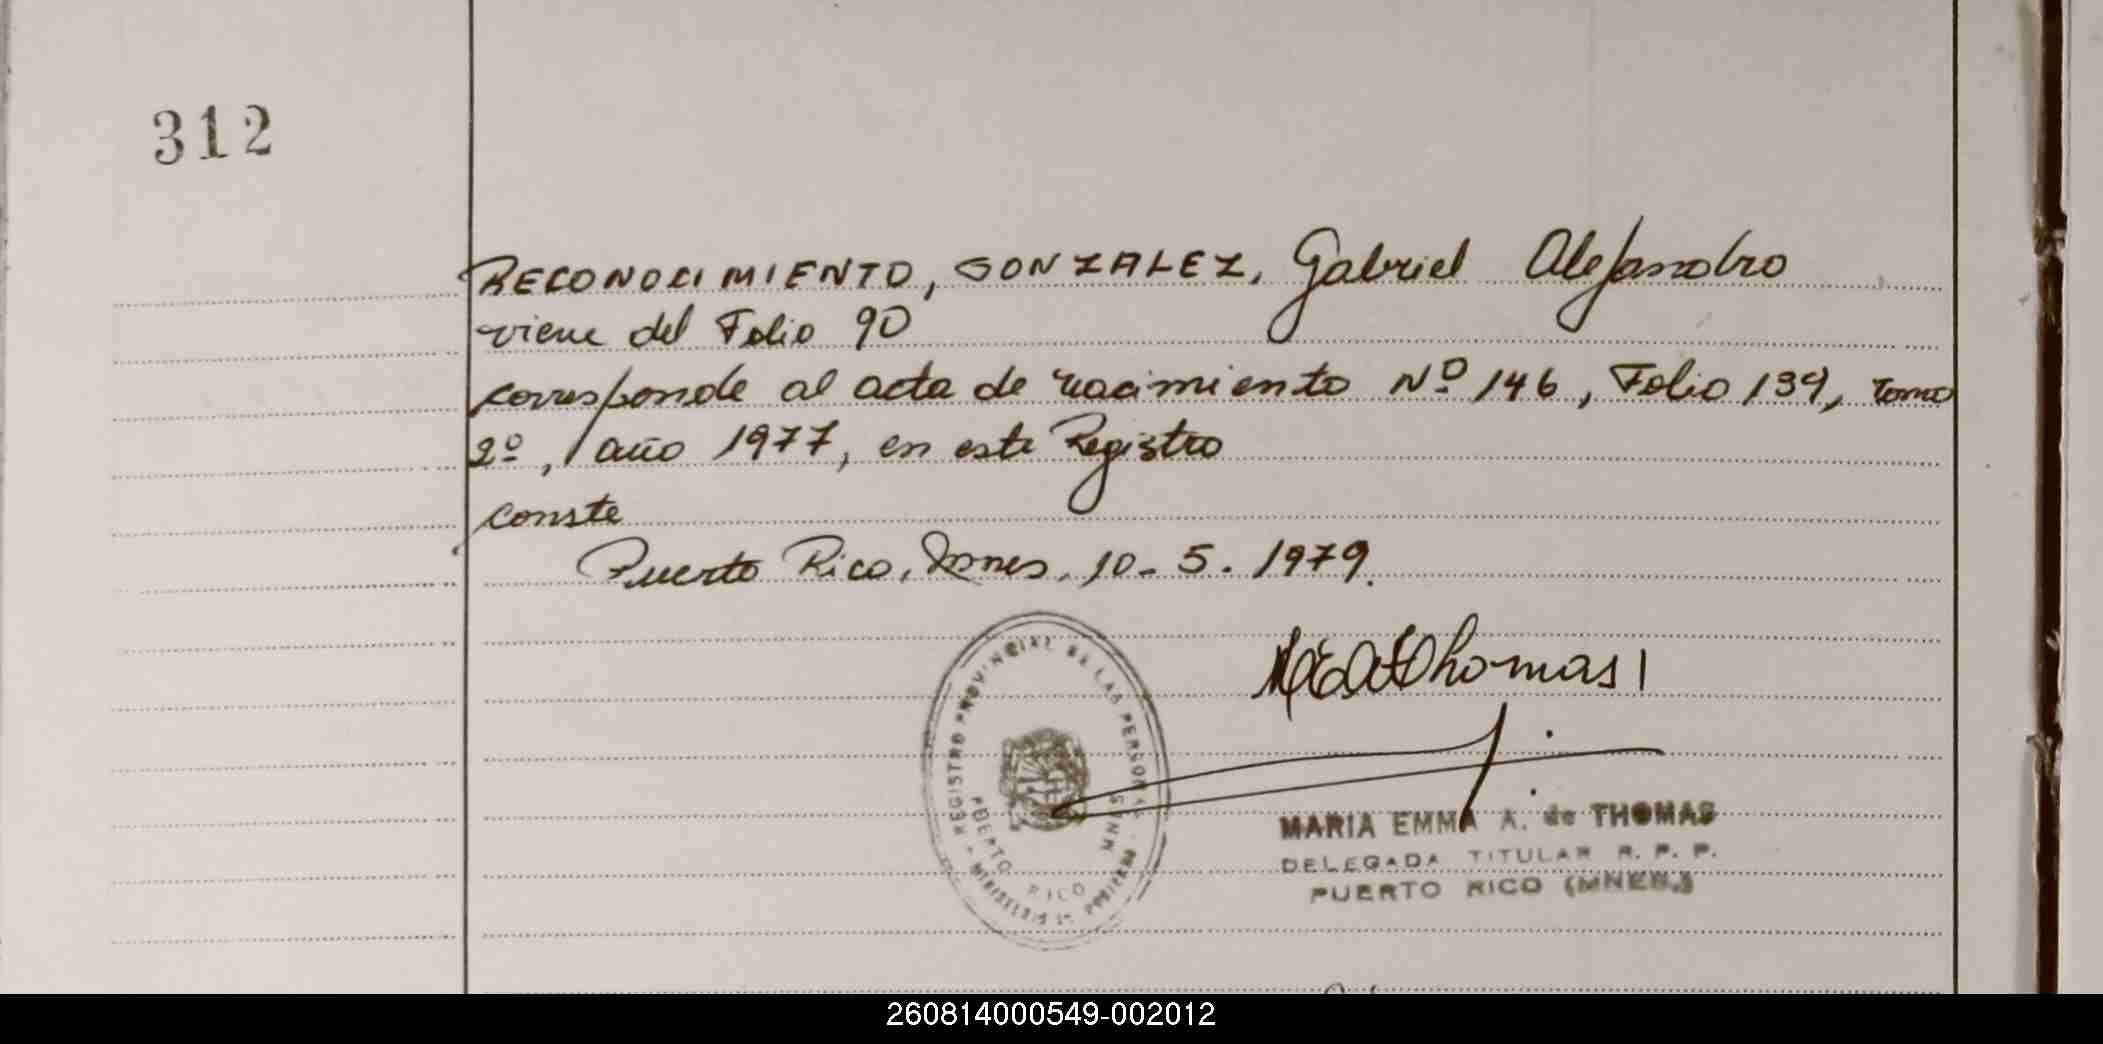 312
RECONOCIMIENTO, GONZALEZ, Gabriel Alejandro
viene del Folio 90
corresponde al acta de nacimiento Nº 146, Folio 139, tomo
2º, año 1977, en este Registro
conste
Puerto Rico, Mnes, 10-5.1979.
MEAdeThomas
REGISTRO PROVINCIAL DE LAS PERSONAS
PUERTO RICO MNES
MARIA EMMA A. de THOMAS
DELEGADA TITULAR R. P. P.
PUERTO RICO (MNES.)
260814000549-002012